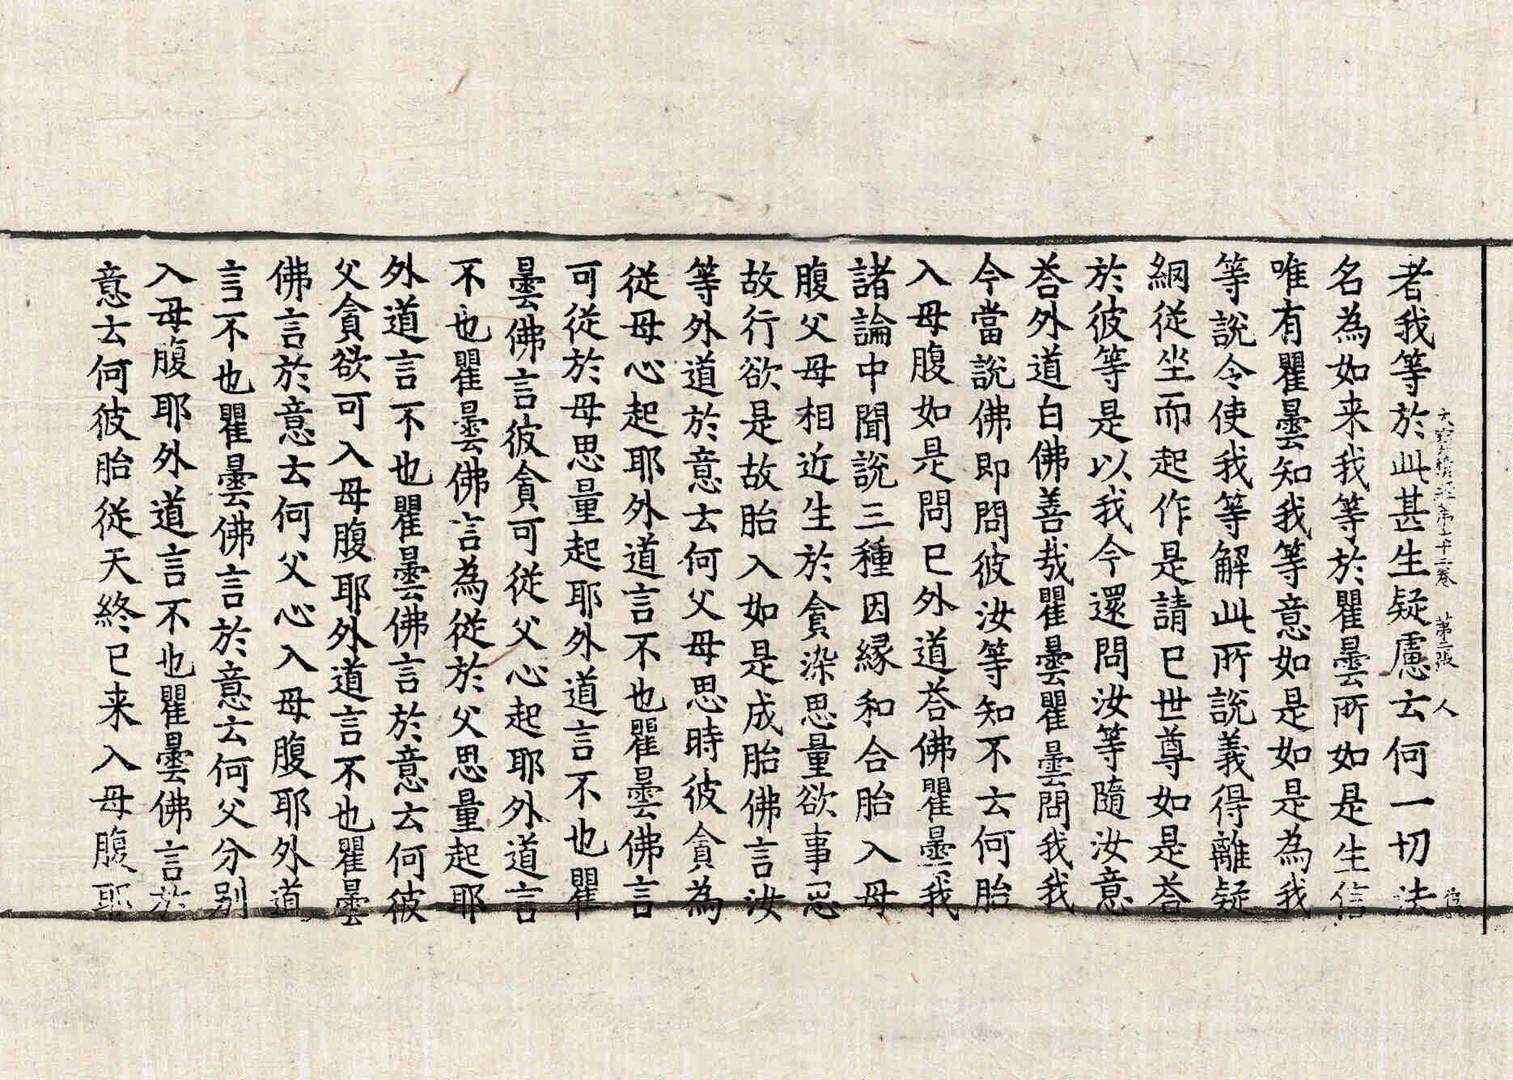 大寶積經第七十三卷 第二張 人
者我等於此甚生疑慮云何一切法
名為如来我等於瞿曇所如是生信
唯有瞿曇知我等意如是如是為我
等說令使我等解此所說義得離疑
網從坐而起作是請已世尊如是荅
於彼等是以我今還問汝等隨汝意
荅外道白佛善哉瞿曇瞿曇問我我
今當說佛即問彼汝等知不云何胎
入母腹如是問已外道荅佛瞿曇我
諸論中聞說三種因縁和合胎入母
腹父母相近生於貪染思量欲事思
故行欲是故胎入如是成胎佛言汝
等外道於意云何父母思時彼貪為
從母心起耶外道言不也瞿曇佛言
可從於母思量起耶外道言不也瞿
曇佛言彼貪可從父心起耶外道言
不也瞿曇佛言為從於父思量起耶
外道言不也瞿曇佛言於意云何彼
父貪欲可入母腹耶外道言不也瞿曇
佛言於意云何父心入母腹耶外道
言不也瞿曇佛言於意云何父分別
入母腹耶外道言不也瞿曇佛言於
意云何彼胎從天終已来入母腹耶